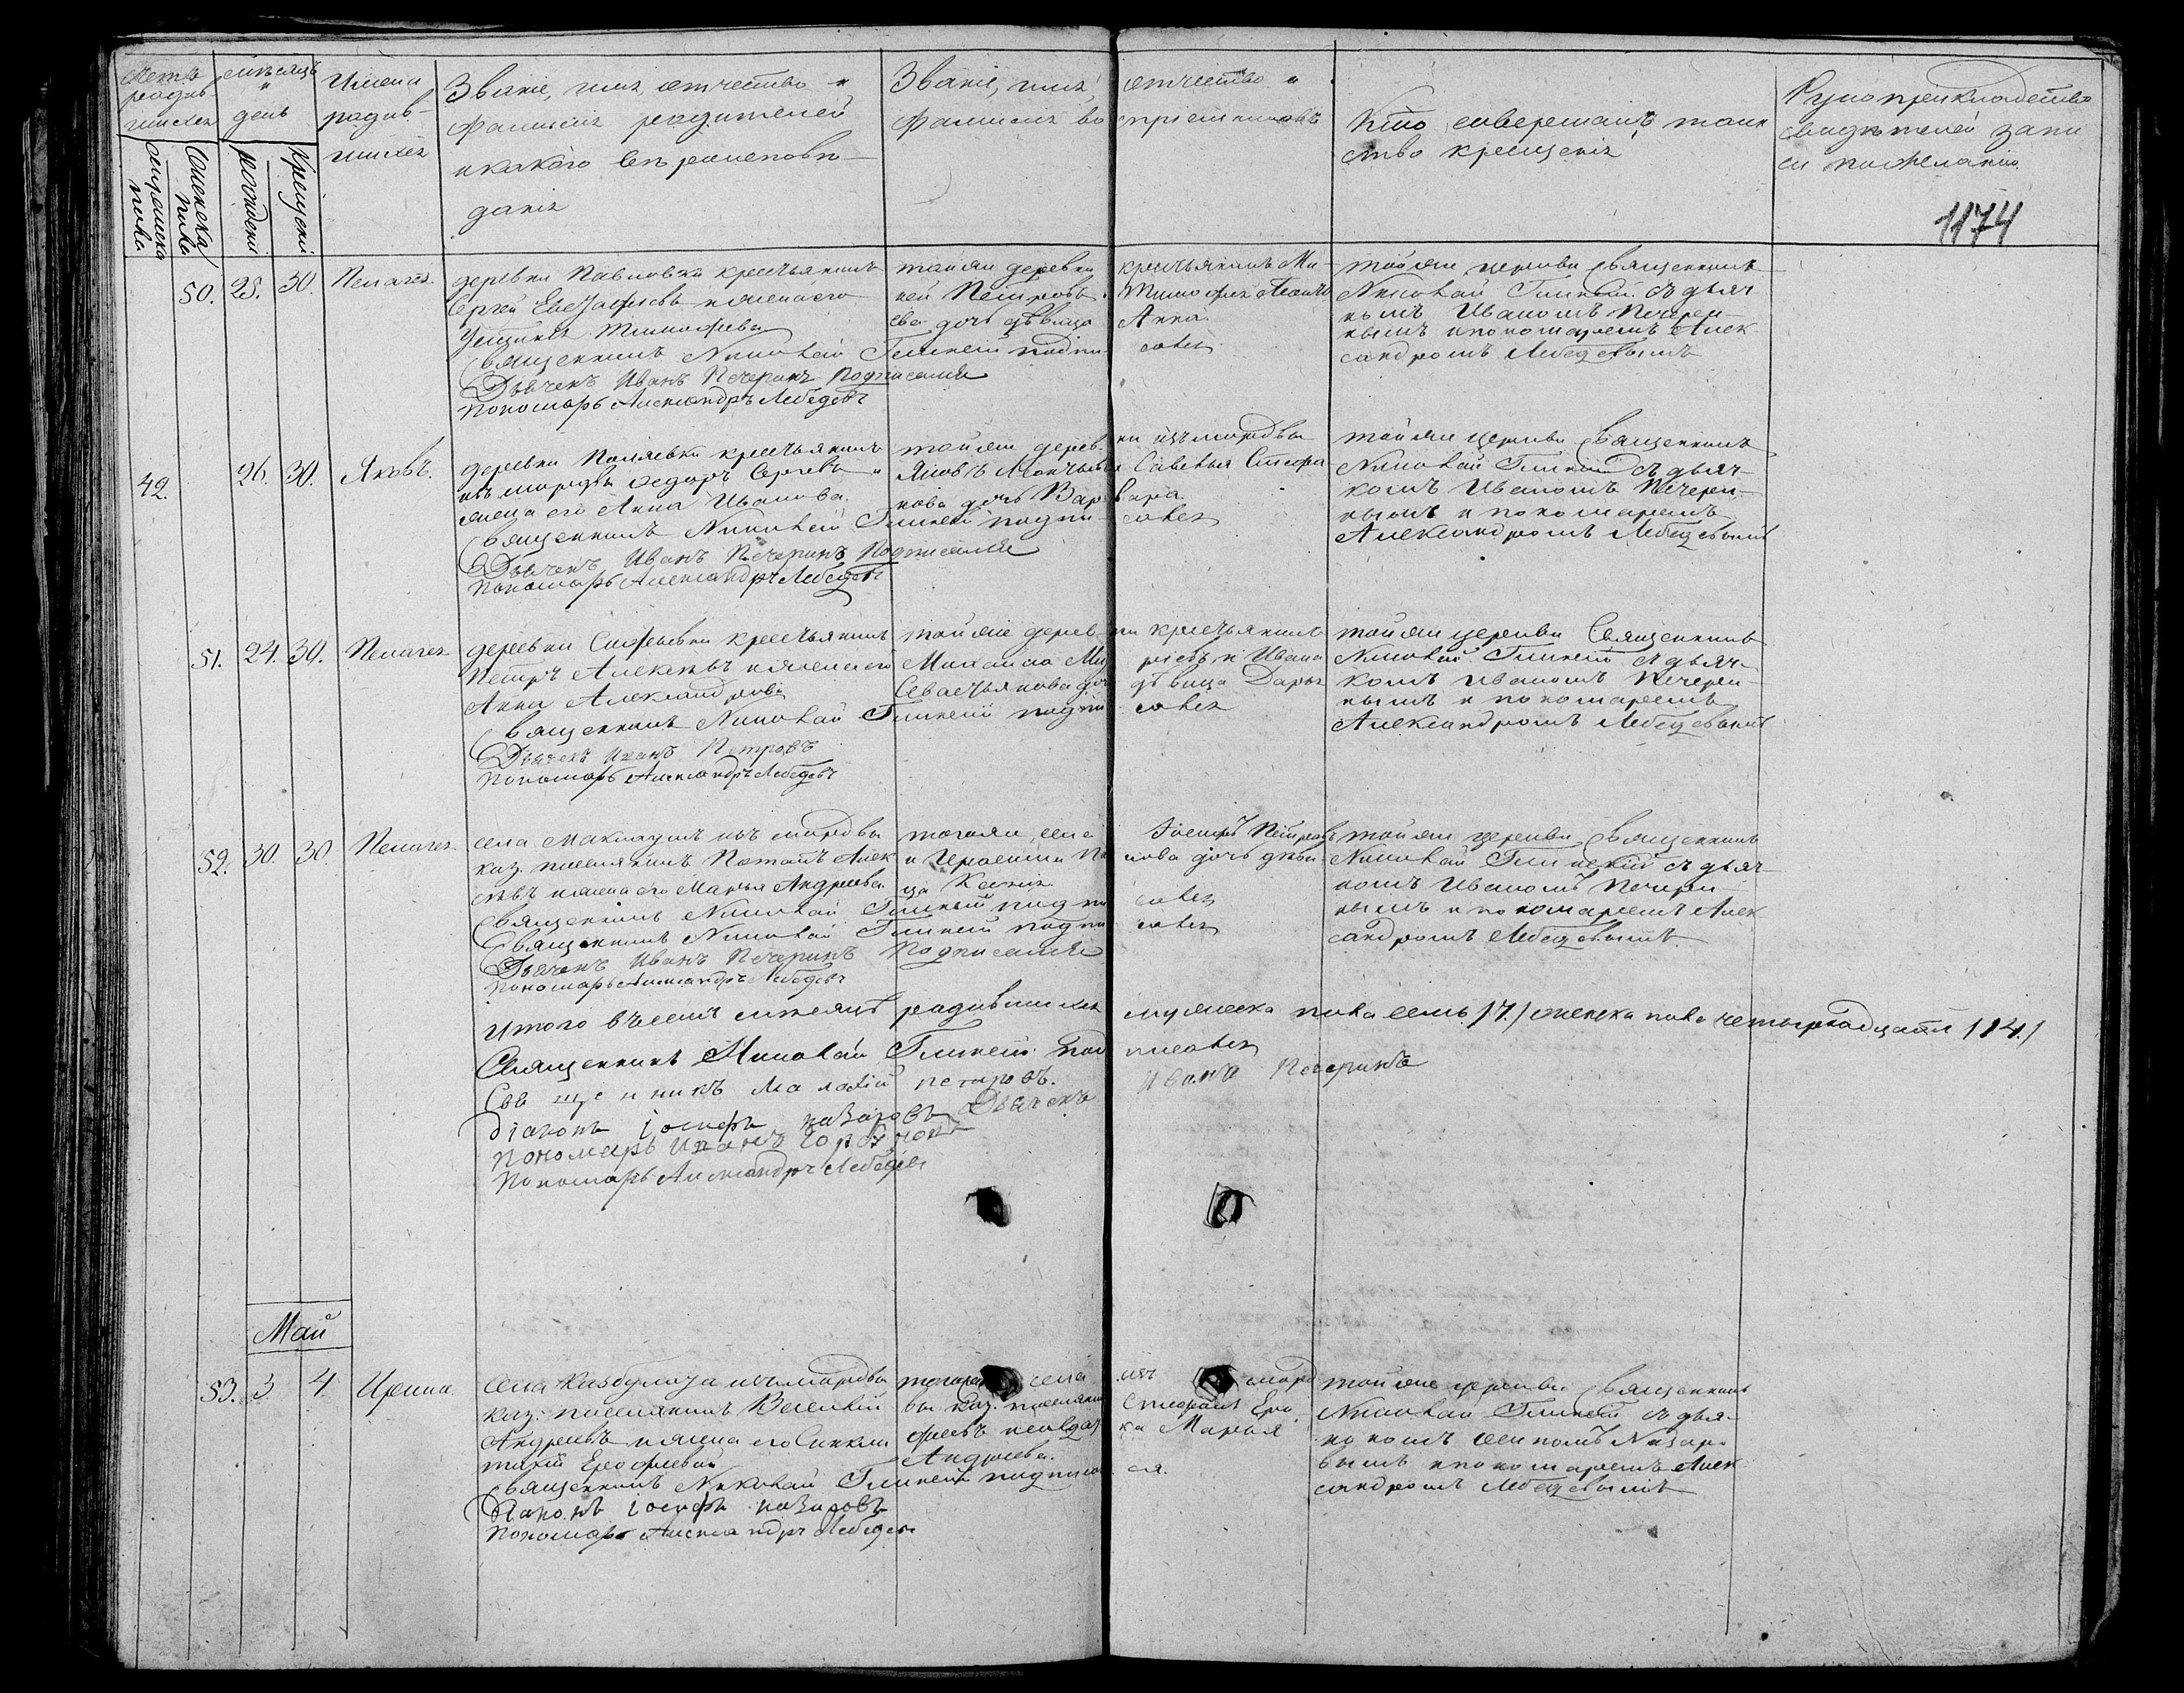 Счетъ родившихся
мѣсяцъ и день
Имена родив-
шихся
Званіе, имя, отчество и
фамилія родителей
и какого вѣроисповѣ-
данія
Званіе, имя, отчество и
фамилія воспріемниковъ
Кто совершалъ таин
ство крещенія
Рукоприкладство
свидѣтелей запи
си по желанію.
мужеска пола
женска пола
рожденія
крещенія
1174
50. 25. 30. Пелагея
деревни Павловки крестьянинъ
Сергей Евстафьевъ и жена его
Устинья Тимофеева
Священникъ Николай Глинкей подпи
сался
Дьячекъ Иванъ Печеринъ Подписался
Пономарь Александръ Лебедевъ
той же деревни крестьянинъ Ми
хей Петровъ. Тимофея
ева дочь дѣвица Анна.
той же церкви Священникъ
Николай Глинкей съ дьяч
комъ Иваномъ Печери-
нымъ и пономаремъ Алек
сандромъ Лебедевымъ
42. 26. 30. Яковъ.
деревни крестьянинъ
изъ мордвы Ѳедоръ Сергеевъ и
жена его Анна Иванова.
Священникъ Николай Глинкей подпи-
сался
Дьячекъ Иванъ Печеринъ Подписался
Пономарь Александръ Лебедевъ
той же дерев ни изъ мордвы
Яковъ Савелья Стефа
нова дочь Варвара
той же церкви Священникъ
Николай Глинкей съ дьяч-
комъ Иваномъ Печери-
нымъ и пономаремъ
Александромъ Лебедевымъ
51. 24. 30. Пелагея
деревни крестьянинъ
Петръ Алексѣевъ и жена его
Анна Александрова
Священникъ Николай Глинкей подпи
сался
Дьячекъ Иванъ Петровъ
Пономарь Александръ Лебедевъ
той же дерев ни крестьянинъ
Михайла и Ивана
Севастьянова дочь дѣвица Дарья
той же церкви Священникъ
Николай Глинкей съ дьяч-
комъ Иваномъ Печери-
нымъ и пономаремъ
Александромъ Лебедевымъ
52. 30. 30. Пелагея
села Маклаушъ изъ мордвы
каз. поселянинъ Потапъ Алек
сѣевъ и жена его Марья Андреева
Священникъ Николай Глинкей подпи
сался
Священникъ Николай Глинкей подпи
сался
Дьячекъ Иванъ Печеринъ Подписался
Пономарь Александръ Лебедевъ
того же села Іосифъ Петровъ
и дочь дѣви
ца Ксенія
той же церкви Священникъ
Николай Глинкей съ дьяч-
комъ Иваномъ Печери-
нымъ и пономаремъ Алек
сандромъ Лебедевымъ.
Итого въ семъ месяцѣ родившихся мужеска пола семь /7./ женска пола четырнадцать /14./
Священникъ Николай Глинкей под писался
Священникъ Малахій петровъ.
діаконъ іосифъ назаровъ Дьячекъ Иванъ Печеринъ
Пономарь Иванъ
Пономарь Александръ Лебедевъ
Май
53. 3 4. Ирина
села Кизбулата изъ мордвы
каз. поселянинъ Василій
Андреевъ и жена его Синкли
тикія Ерофеева
Священникъ Николай Глинкей подписал
ся.
Діаконъ іосифъ назаровъ
Пономарь Александръ Лебедевъ
того же села изъ морд
вы каз. поселянин Стефанъ Еро
феевъ и Марья
Андреева.
той же церкви Священникъ
Николай Глинкей съ дья-
кономъ Осипомъ Назаро
вымъ и пономаремъ Алек
сандромъ Лебедевымъ